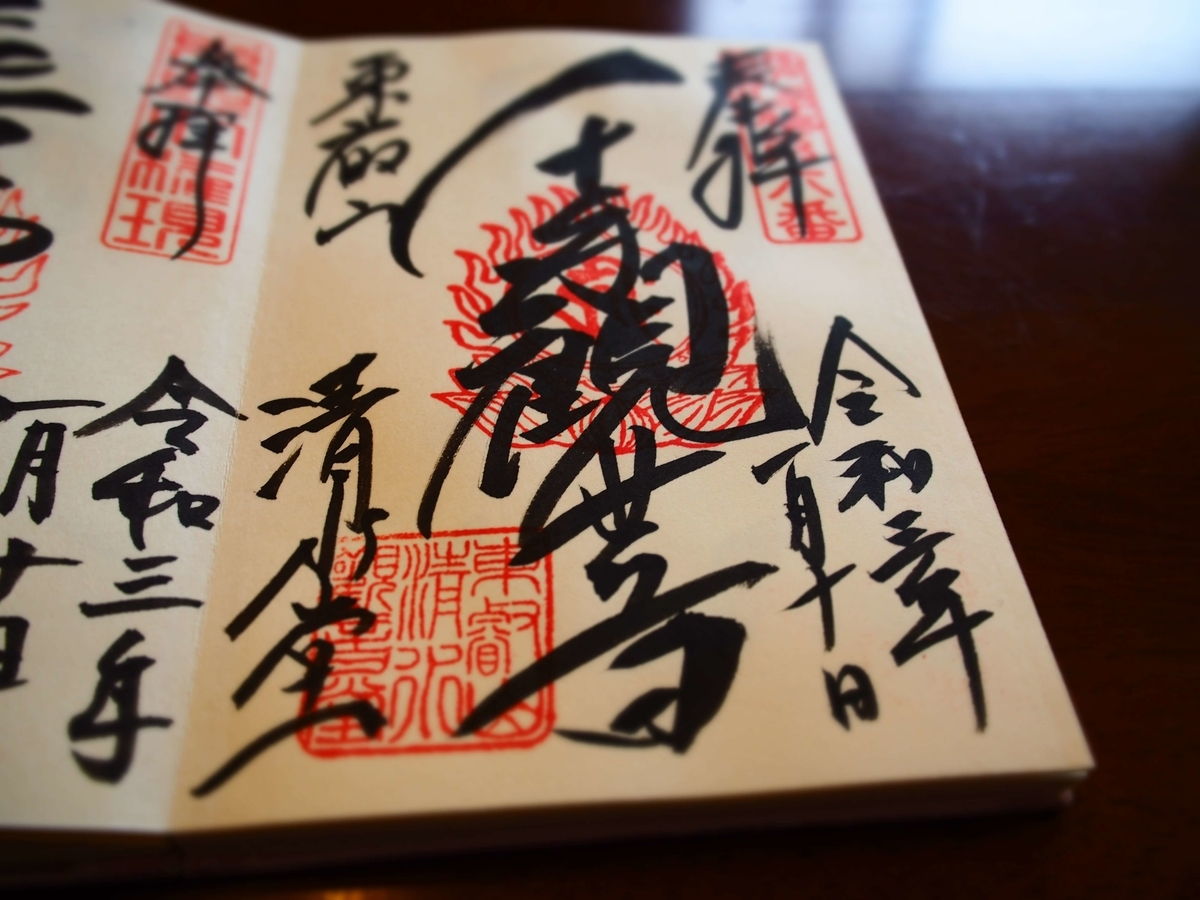 奉拝
六番
令和三年
一月十日
千手觀世音
東叡山
清水
觀音堂
東叡山
清水堂
奉拝
令和三年
一月